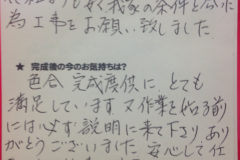 我家の条件と合った
為工事をお願い致しました。
★ 完成後の今のお気持ちは？
色合 完成度供に とても
満足しています 又作業を始る前
には必ず説明に来て下さり あり
がとうございました 安心して仕